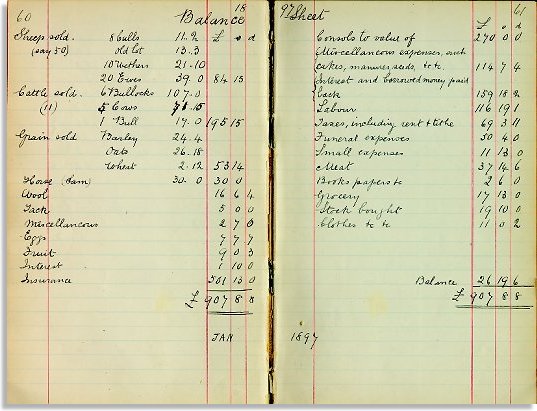 60
Balance
18
Sheep sold. 8 bulls 11. 2 £ s d
(say 50) old lot 13. 3
10 wethers 21. 10
20 Ewes 39. 0 84 15
Cattle sold. 6 Bullocks 107. 0
(11) 5 Cows 71. 15
1 Bull 17. 0 195 15
Grain sold Barley 24. 4
Oats 26. 18
Wheat 2. 12 53 14
Horse (Sam) 30. 0 30 0
Wool 16 6 4
Tack 5 0 0
Miscellaneous 2 7 0
Eggs 7 7 7
Fruit 9 0 3
Interest 1 10 0
Insurance 501 13 0
£ 907 8 8
JAN
97
Sheet
61
£ s d
Consols to value of 270 0 0
Miscellaneous expenses, such
cakes, manures, seeds, tc tc 114 7 4
Interest and borrowed money paid
back 159 18 2
Labour 116 19 1
Taxes, including rent & tithe 69 3 11
Funeral expenses 50 4 0
Small expenses 11 13 0
Meat 37 14 6
Books papers tc 2 6 0
Grocery 17 13 0
Stock bought 19 10 0
Clothes tc tc 11 0 2
Balance 26 19 6
£ 907 8 8
1897